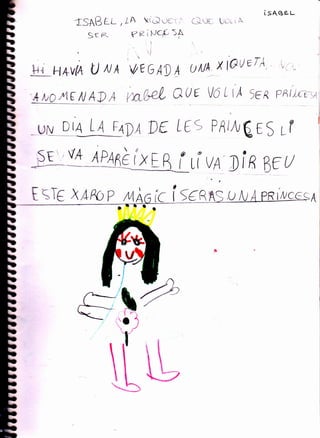 ISABEL
ISABEL, LA XIQUETA QUE VOLIA
SER PRINCESA
HI HAVIA UNA VEGADA UNA XIQUETA
ANOMENADA isabel QUE VOLIA SER PRINCESA
UN DIA LA FADA DE LES PRINCESES LI
SE VA APARÈIXER I LI VA DIR BEU
ESTE XAROP MÀGIC I SERAS UNA PRINCESA